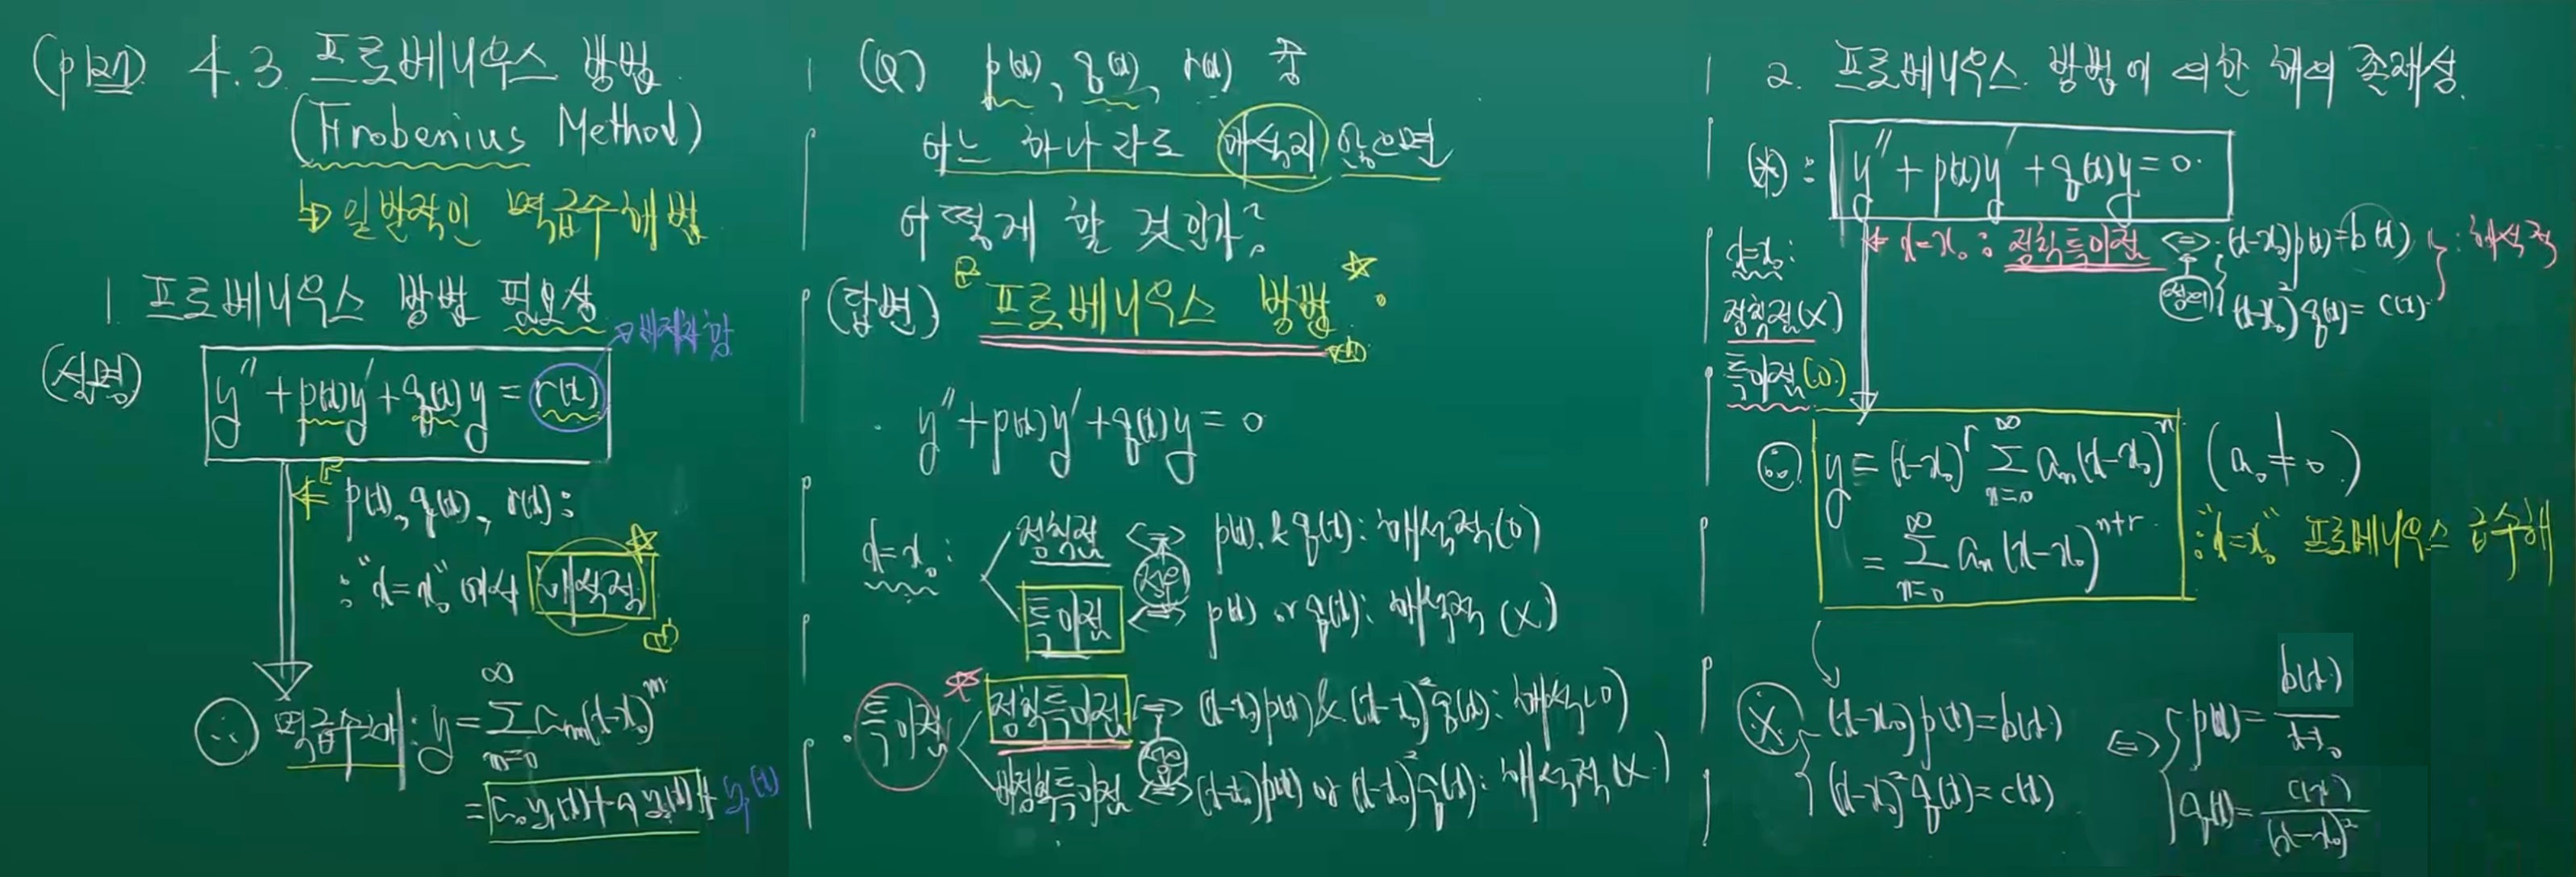 (p127) 4.3. 프로베니우스 방법.
(Frobenius Method)
↳ 일반적인 멱급수해법
1. 프로베니우스 방법 필요성
→ 비제차항
(설명) y''+p(x)y'+q(x)y=r(x)
← p(x), q(x), r(x):
: "x=x₀" 에서 해석적
∴ 멱급수해: y=∑_{m=0}^{∞} a_m(x-x₀)^m
= a₀y₁(x)+a₁y₂(x)+y_p(x)
(Q) p(x), q(x), r(x) 중
어느 하나라도 해석적 않으면
어떻게 할 것인가?
(답변) 프로베니우스 방법
y''+p(x)y'+q(x)y=0
x=x₀:
정칙점 <=> p(x) & q(x): 해석적(O)
정의
특이점 <=> p(x) or q(x): 해석적 (X)
특이점
정칙특이점 <=> (x-x₀)p(x) & (x-x₀)²q(x): 해석(O)
정의
비정칙특이점 <=> (x-x₀)p(x) or (x-x₀)²q(x): 해석적(X)
2. 프로베니우스 방법에 의한 해의 존재성.
(*): y''+p(x)y'+q(x)y=0.
x=x₀:
정칙점(X)
특이점(O)
← x=x₀: 정칙특이점 <=> (x-x₀)p(x)=b(x)
정의 (x-x₀)²q(x)=c(x)
: 해석적
∴ y=(x-x₀)^r ∑_{n=0}^{∞} a_n(x-x₀)^n (a₀≠0)
= ∑_{n=0}^{∞} a_n(x-x₀)^{n+r}
: "x=x₀" 프로베니우스 급수해
※ (x-x₀)p(x)=b(x)
(x-x₀)²q(x)=c(x)
<=> p(x)=b(x)/(x-x₀)
q(x)=c(x)/(x-x₀)²